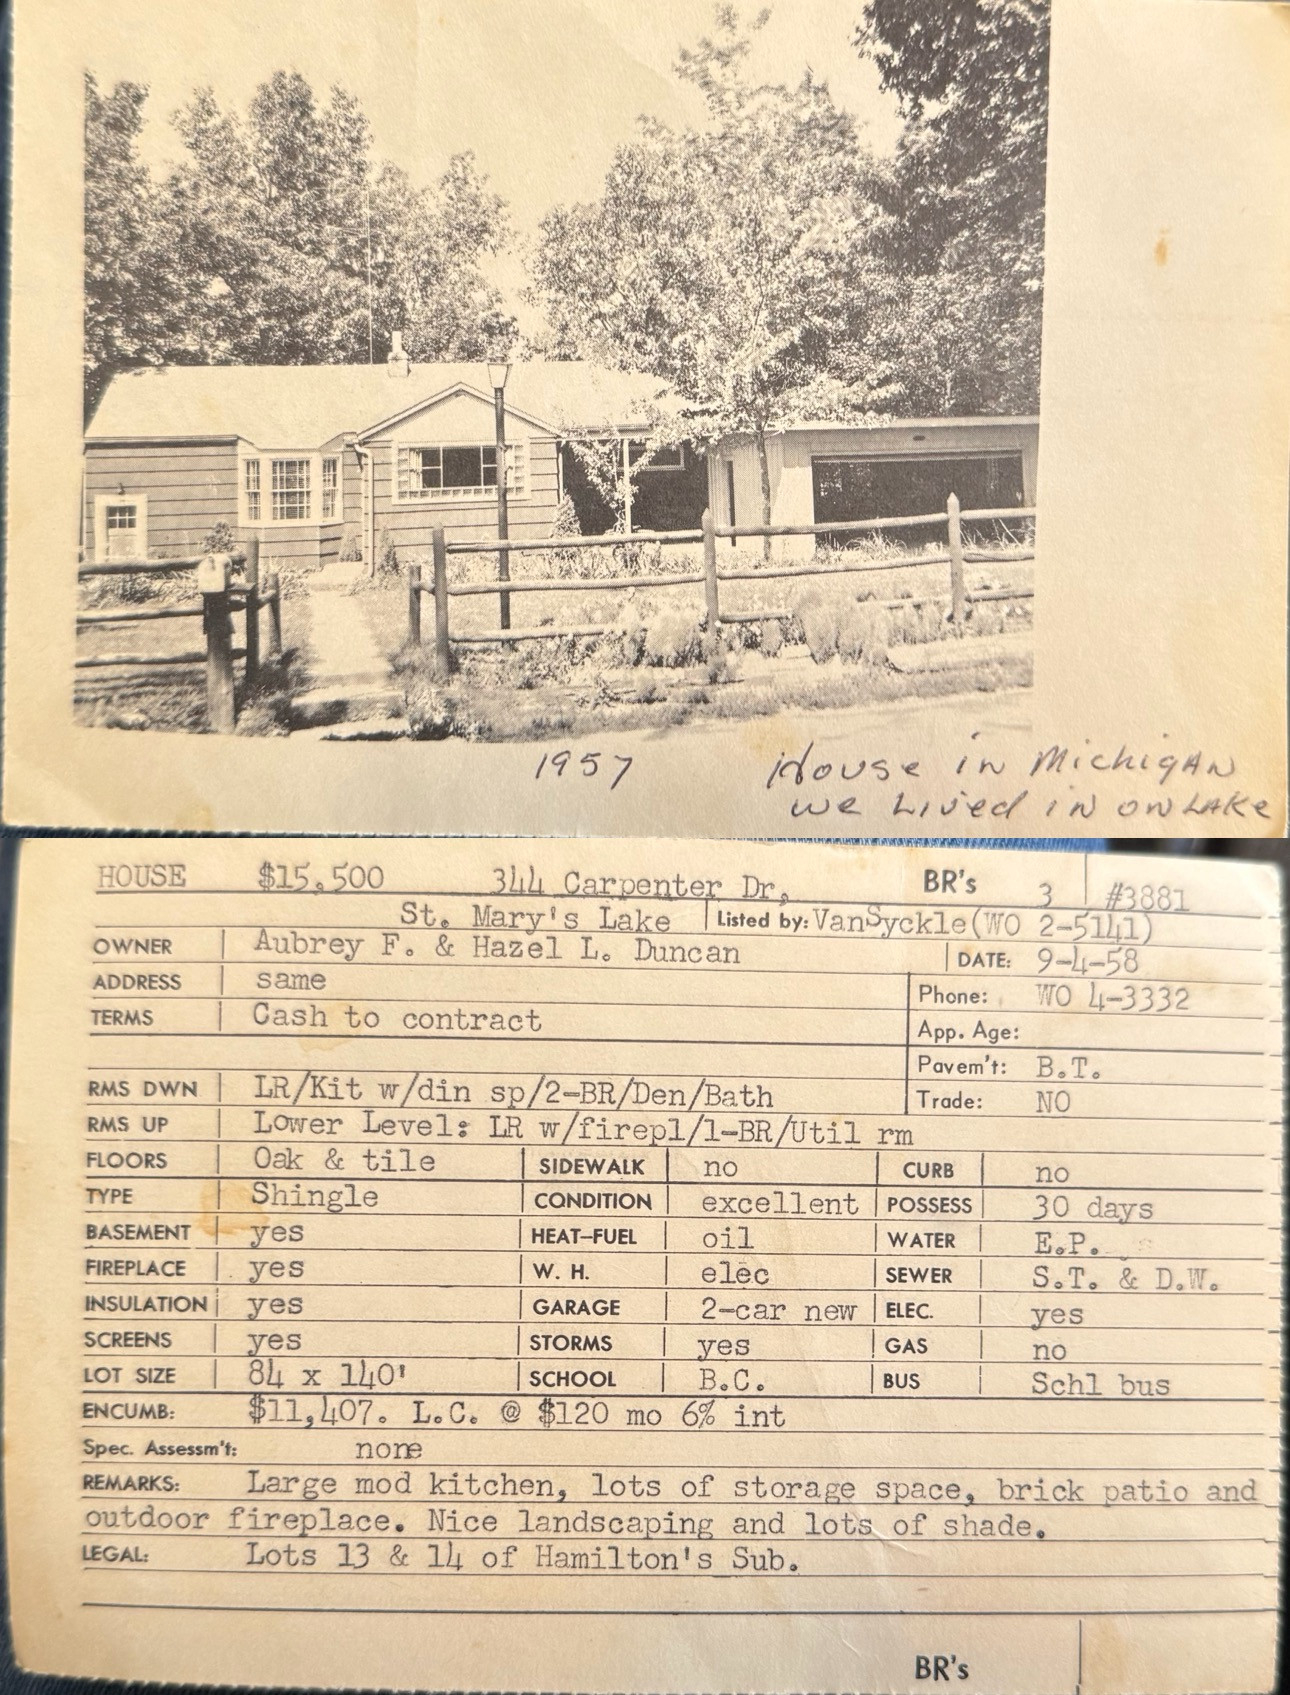 1957 House in Michigan
we Lived in on Lake
HOUSE $15,500 344 Carpenter Dr, BR's 3 #3881
St. Mary's Lake Listed by: VanSyckle(WO 2-5141)
OWNER Aubrey F. & Hazel L. Duncan DATE: 9-4-58
ADDRESS same Phone: WO 4-3332
TERMS Cash to contract App. Age:
Pavem't: B.T.
RMS DWN LR/Kit w/din sp/2-BR/Den/Bath Trade: NO
RMS UP Lower Level: LR w/firepl/1-BR/Util rm
FLOORS Oak & tile SIDEWALK no CURB no
TYPE Shingle CONDITION excellent POSSESS 30 days
BASEMENT yes HEAT-FUEL oil WATER E.P.
FIREPLACE yes W. H. elec SEWER S.T. & D.W.
INSULATION yes GARAGE 2-car new ELEC. yes
SCREENS yes STORMS yes GAS no
LOT SIZE 84 x 140' SCHOOL B.C. BUS Schl bus
ENCUMB: $11,407. L.C. @ $120 mo 6% int
Spec. Assessm't: none
REMARKS: Large mod kitchen, lots of storage space, brick patio and
outdoor fireplace. Nice landscaping and lots of shade.
LEGAL: Lots 13 & 14 of Hamilton's Sub.
BR's